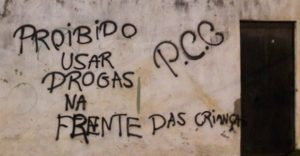 PROIBIDO
USAR
DROGAS
NA
FRENTE DAS CRIANÇAS
P.C.C